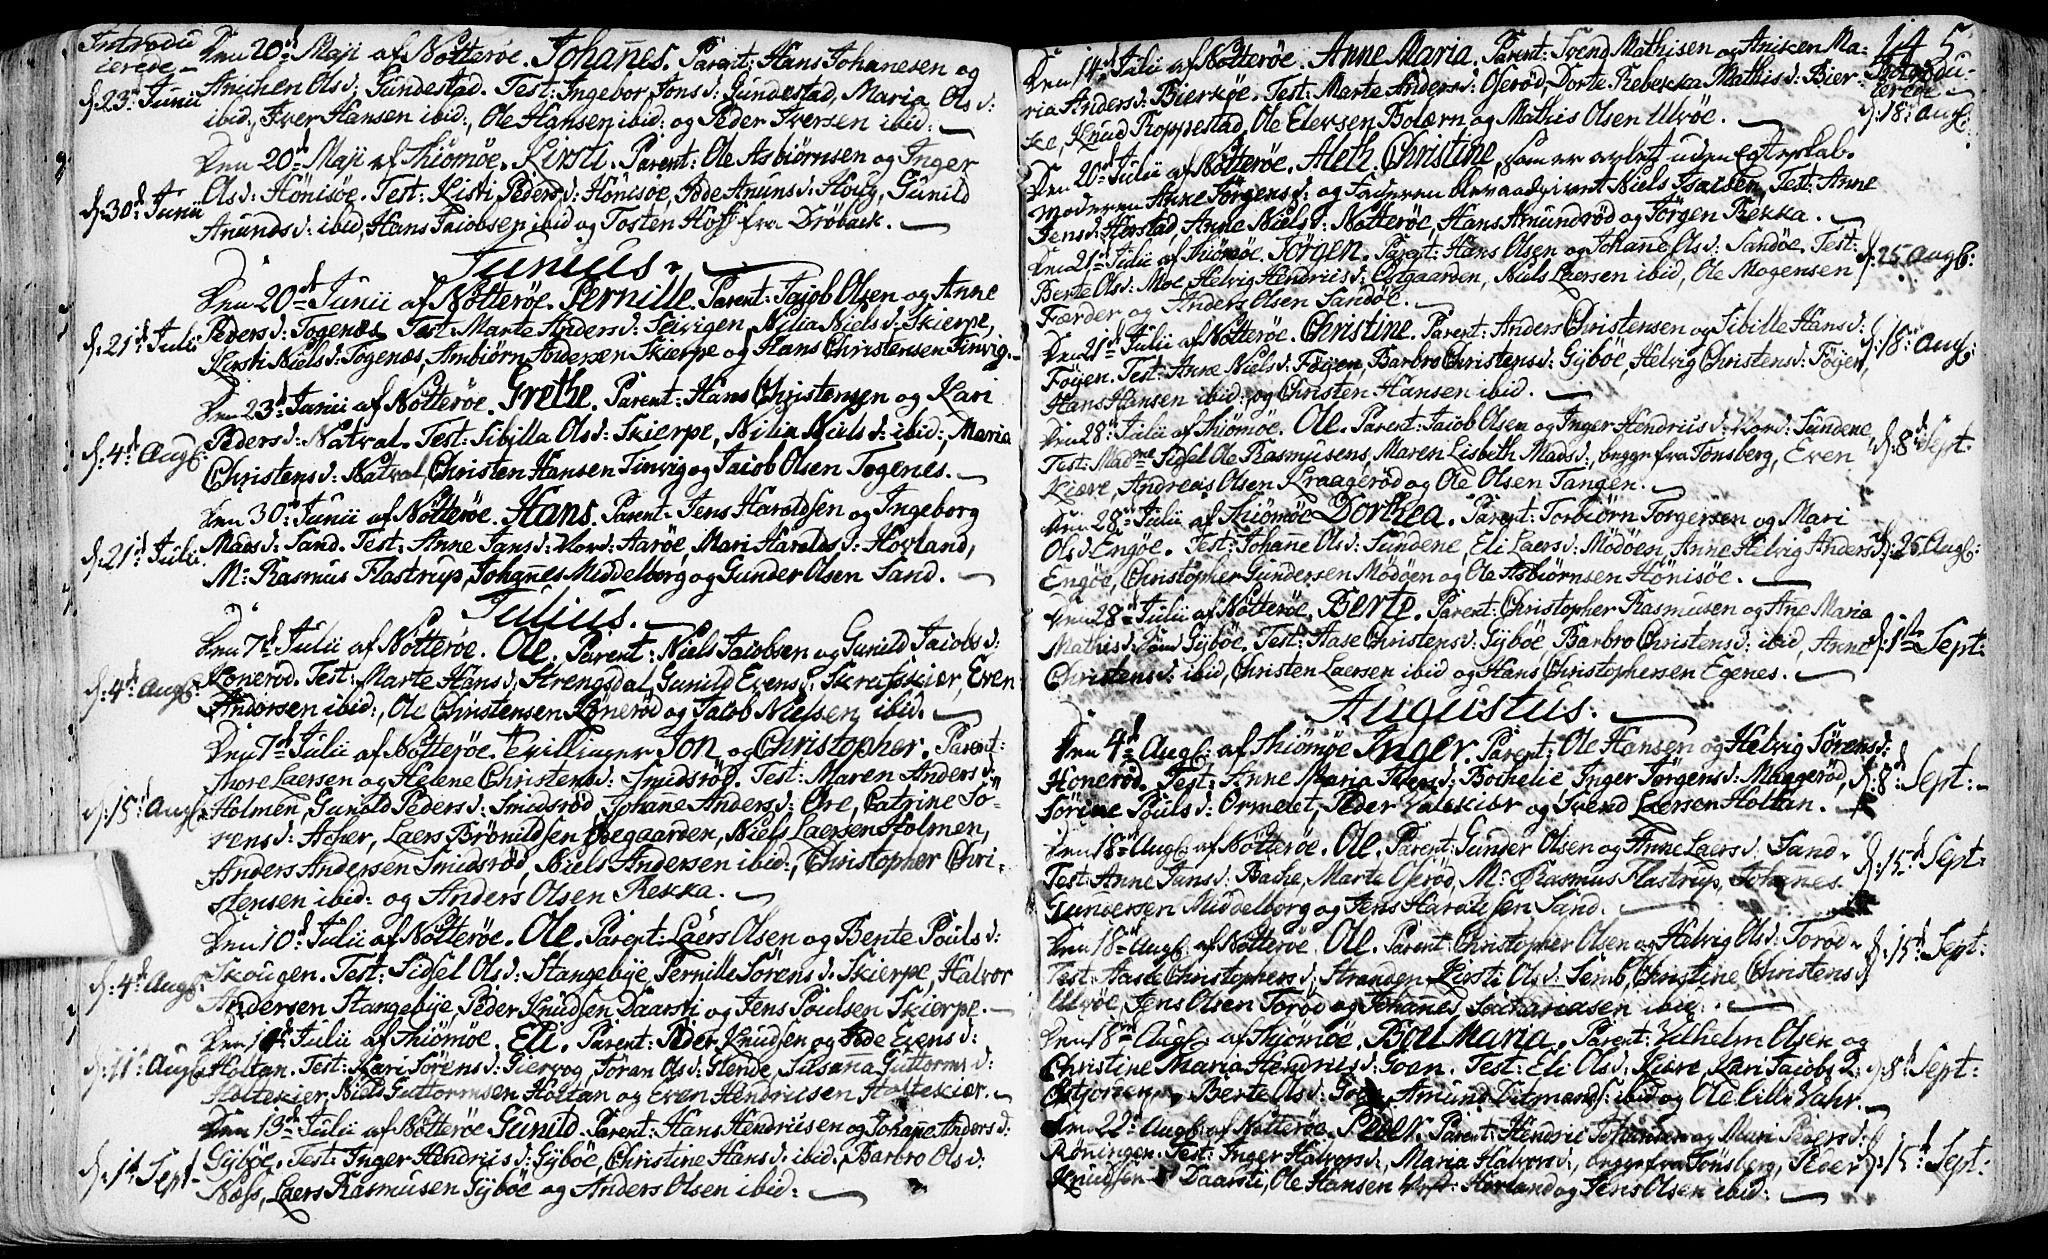 Introdu
cerede
Den 20d Maji af Nötteröe. Johañes. Parent: Hans Johanesen og
Anichen Olsd: Gundestad. Test: Ingebor Jonsd: Gundestad, Maria Olsd:
d: 23d Junii
ibid:, Iver Hansen ibid:, Ole Hansen ibid: og Peder Iversen ibid:
Den 20d Maji af Thiömöe. Kirsti. Parent: Ole Asbiörnsen og Inger
Olsd: Hönisöe. Test: Kisti Pedersd: Hönisoe, Anunsd: Houg, Gunild
d: 30d Junii
Anunds d: ibid, Hans Jacobsen ibid og Tosten Hoff fra Dröback.
Junius.
Den 20d Junii af Nötteröe. Pernille. Parent: Jacob Olsen og Anne
Pedersd: Togenæs. Test: Marte Andersd: Nilia Nielsd: Skierpe,
d: 21d Julii
Kirsti Nielsd: Togenæs, Ambiörn Andersen Skierpe og Hans Christensen Tinvig.
Den 23d Junii af Nötteröe. Grethe. Parent: Hans Christensen og Kari
Pedersd: Natval. Test: Sibilla Olsd: Skierpe, Nilia Nielsd: ibid:, Maria
d: 4d Augl:
Christensd: Natval, Christen Hansen Tinvig og Jacob Olsen Togenes.
Den 30d Junii af Nötteröe. Hans. Parent: Jens Haroldsen og Ingeborg
Madsd: Sand. Test: Anne Jansd: Nord: Aaröe, Mari Haroldsd: Hovland,
d: 21d Julii
Mr: Rasmus Flastrup, Johañes Middelborg og Gunder Olsen Sand.
Julius.
Den 7d Julii af Nötteröe. Ole. Parent: Niels Jacobsen og Gunild Jacobsd:
Konerod. Test: Marte Hansd: Strengsdal, Gunild Evensd: Even
d: 4d Augl:
Andersen ibid:, Ole Christensen Koneröd og Jacob Nielsen ibid.
Den 7d Julii af Nötteröe. Tvillinger Jon og Christopher. Parent:
Thore Laersen og Helene Christensd: Smidsröd. Test: Maren Andersd:
d: 15d Augl:
Holmen, Gunild Pedersd: Smidsröd, Johane Andersd: Öre, Catrine Sö-
rensd: Acher, Laers Brönildsen Ödegaarden, Niels Laersen Holmen,
Anders Andersen Smidsröd, Niels Andersen ibid:, Christopher Chri-
stensen ibid: og Anders Olsen Rekka.
Den 10d Julii af Nötteröe. Ole. Parent: Laers Olsen og Bente Poulsd:
Skougen. Test: Sidsel Olsd: Stangebÿe, Pernille Sörensd: Skierpe, Halvor
d: 4d Augl:
Andersen Stangebÿe, Peder Knudsen Daarsti og Jens Poulsen Skierpe.
Den Julii af Thiömöe. Eli. Parent: Peder Knudsen og Evensd:
d: 11d Augl:
Holtan. Test: Kari Sörensd: Giervog, Jöran Olsd: Glende, Susaña Guttormsd:
Holtekier, Niels Guttormsen Holtan og Even Hendricsen Holtekier.
Den 13d Julii af Nötteröe Gunild. Parent: Hans Hendricsen og Johañe Andersd:
d: 1d Sept
Gÿböe. Test: Inger Hendricsd: Gÿböe, Christine Hansd: ibid:, Barbro Olsd:
Næss, Laers Rasmusen Gÿböe og Anders Olsen ibid:
145
Introdu-
cerede
Den 14d Julii af Nötteröe. Anne Maria. Parent: Svend Mathisen og Anicken Ma-
ria Andersd: Bierköe. Test: Marte Andersd: Gieröd, Dorte Rebekka Mathisd: Bier-
d: 18d Augl:
ke, Knud Roppestad, Ole Elevsen Bolærn og Mathis Olsen Ulvöe.
Den 20d Julii af Nötteröe. Aleth Christine, som er avlet uden Egteskab.
Moderen Anne Jörgensd: og Faderen blev angivet Niels Isacsen. Test: Anne
Jensd: Herstad, Anne Nielsd: Nötteröe, Hans Amundröd og Jörgen Rekka.
Den 21d Julii af Thiömöe. Jörgen. Parent: Hans Olsen og Johañe Olsd: Sandöe. Test:
d: 25 Augl:
Berte Olsd: Moe, Helvig Hendricsd: Östgaarden, Niels Laersen ibid, Ole Mogensen
Færder og Anders Olsen Sandöe.
Den 21d Julii af Nötteröe. Christine. Parent: Anders Christensen og Sibille Hansd:
d: 18d Augl:
Föÿen. Test: Anne Nielsd: Föÿen, Barbro Christensd: Gÿböe, Helvig Christensd: Föÿen,
Hans Hansen ibid: og Christen Hansen ibid.
Den 28d Julii af Thiömöe. Ole. Parent: Jacob Olsen og Inger Hendricsd: Nord: Sundene
d: 8d Sept:
Test: Madme Sidsel Ole Rasmusens, Maren Lisbeth Madsd:, begge fra Tönsberg, Even
Kiære, Andreas Olsen Kraageröd og Ole Olsen Tangen.
Den 28d Julii af Thiömöe Dorthea. Parent: Torbiörn Torgersen og Mari
Olsd: Engöe. Test: Johañe Olsd: Sundene, Eli Laersd: Mödöen, Anne Helvig Andersd:
d: 25 Augl:
Engöe, Christopher Gundersen Mödöen og Ole Asbiörnsen Hönisöe.
Den 28d Julii af Nötteröe. Berte. Parent: Christopher Rasmusen og Ane Maria
Mathisd: Gÿböe. Test: Aase Christensd: Gÿböe Barbro Christensd: ibid, Anne
d: 1d Sept:
Christensd: ibid, Christen Laersen ibid og Hans Christophersen Egenes.
Augustus.
Den 4d Augl: af Thiömöe Inger. Parent: Ole Hansen og Helvig Sörensd:
Honeröd. Test: Anne Maria Bothelie, Inger Jörgensd: Maggeröd,
d: 8d Sept:
Sorine Poulsd: Ormelet, Peder og Svend Laersen Holtan.
Den 18d Augl: af Nötteröe. Ole. Parent: Gunder Olsen og Anne Laersd: Sand
d: 15d Sept:
Test: Anne Jansd: Bache, Marte Ojeröd, Mr: Rasmus Flastrup, Johañes
Gundersen Middelborg og Jens Haroldsen Sand.
Den 18d Augl: af Nötteröe. Ole. Parent: Christopher Olsen og Helvig Olsd: Toröd
d: 15d Sept:
Test: Aase Christophersd: Stranden, Kirsti Olsd: Semb, Christine Christensd:
Ulvöe, Jens Olsen Toröd og Johañes Sachariasen ibid.
Den 18d Augl: af Thiömöe, Boel Maria. Parent: Vilhelm Olsen og
Christine Maria Hendricsd: Goen. Test: Eli Olsd: Kiere, Kari Jacobsd:
d: 8d Sept:
Berte Olsd: Amund Ditmands: ibid og Ole Lille Vahr.
Den 22d Augl: af Nötteröe. Peder. Parent: Hendric Johansen og Mari Pedersd:
Röningen. Test: Inger Halvorsd:, Maria Halvorsd:, begge fra Tönsberg, Peder
d: 15d Sept:
Knudsen Daarsti, Ole Hansen Vest: Hovland og Jens Olsen ibid: